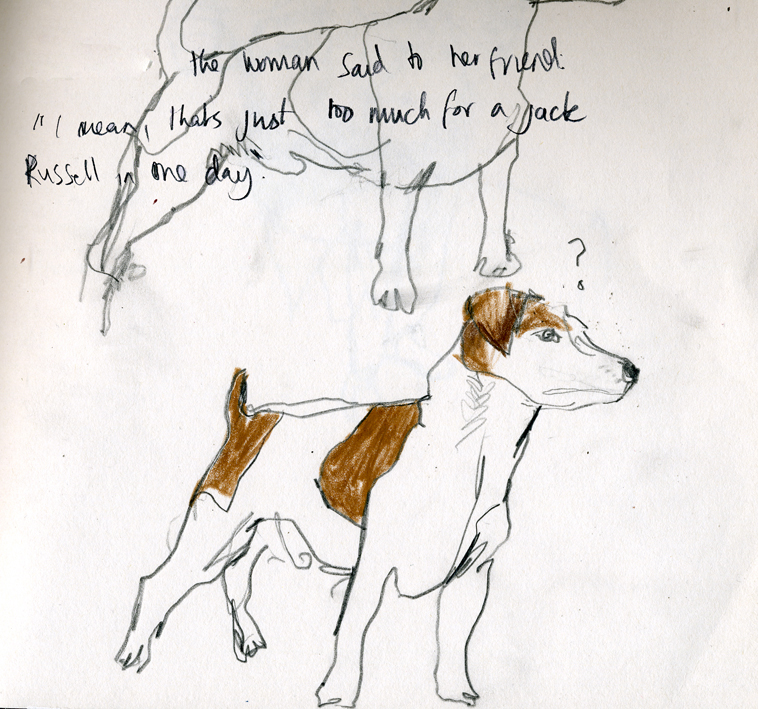 the woman said to her friend:
"I mean, thats just too much for a Jack
Russell in one day.
?